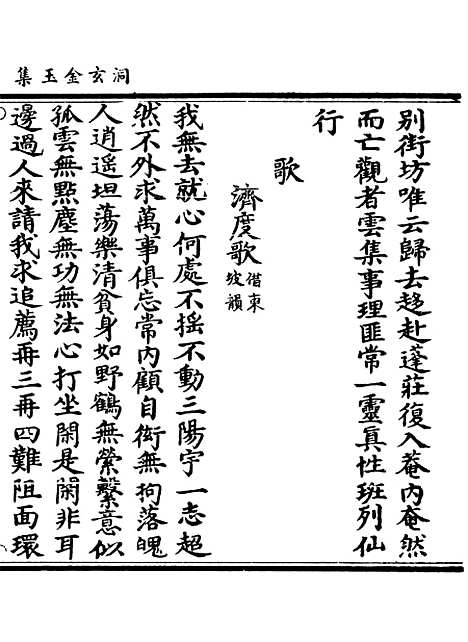 洞玄金玉集
別街坊唯云歸去趍赴蓬莊復入菴內奄然
而亡觀者雲集事理匪常一靈眞性班列仙
行
歌
濟度歌借東坡韻
我無去就心何處不揺不動三陽宇一志超
然不外求萬事俱忘常內顧自衒無拘落魄
人逍遥坦蕩樂清貧身如野鶴無縈繫意似
孤雲無點塵無功無法心打坐閑是閑非耳
邊過人來請我求追薦再三再四難阻面環